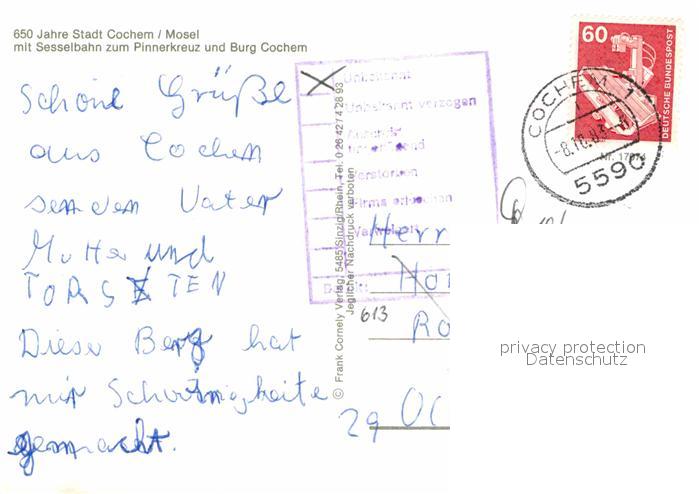 650 Jahre Stadt Cochem / Mosel
mit Sesselbahn zum Pinnerkreuz und Burg Cochem
Schöne Grüße
aus Cochem
senden Vater
Mutter und
TORSTEN
Diese Berg hat
mir Schwirigkeite
gemacht.
© Frank Cornely Verlag, 5485 Sinzig/Rhein, Tel. 0 26 42 / 4 28 93
Jeglicher Nachdruck verboten
Unbekannt
Unbekannt verzogen
Verstorben
Firma erloschen
60
DEUTSCHE BUNDESPOST
COCHEM 1
-8.10.83
5590
Herr
613
Ro
29
privacy protection
Datenschutz